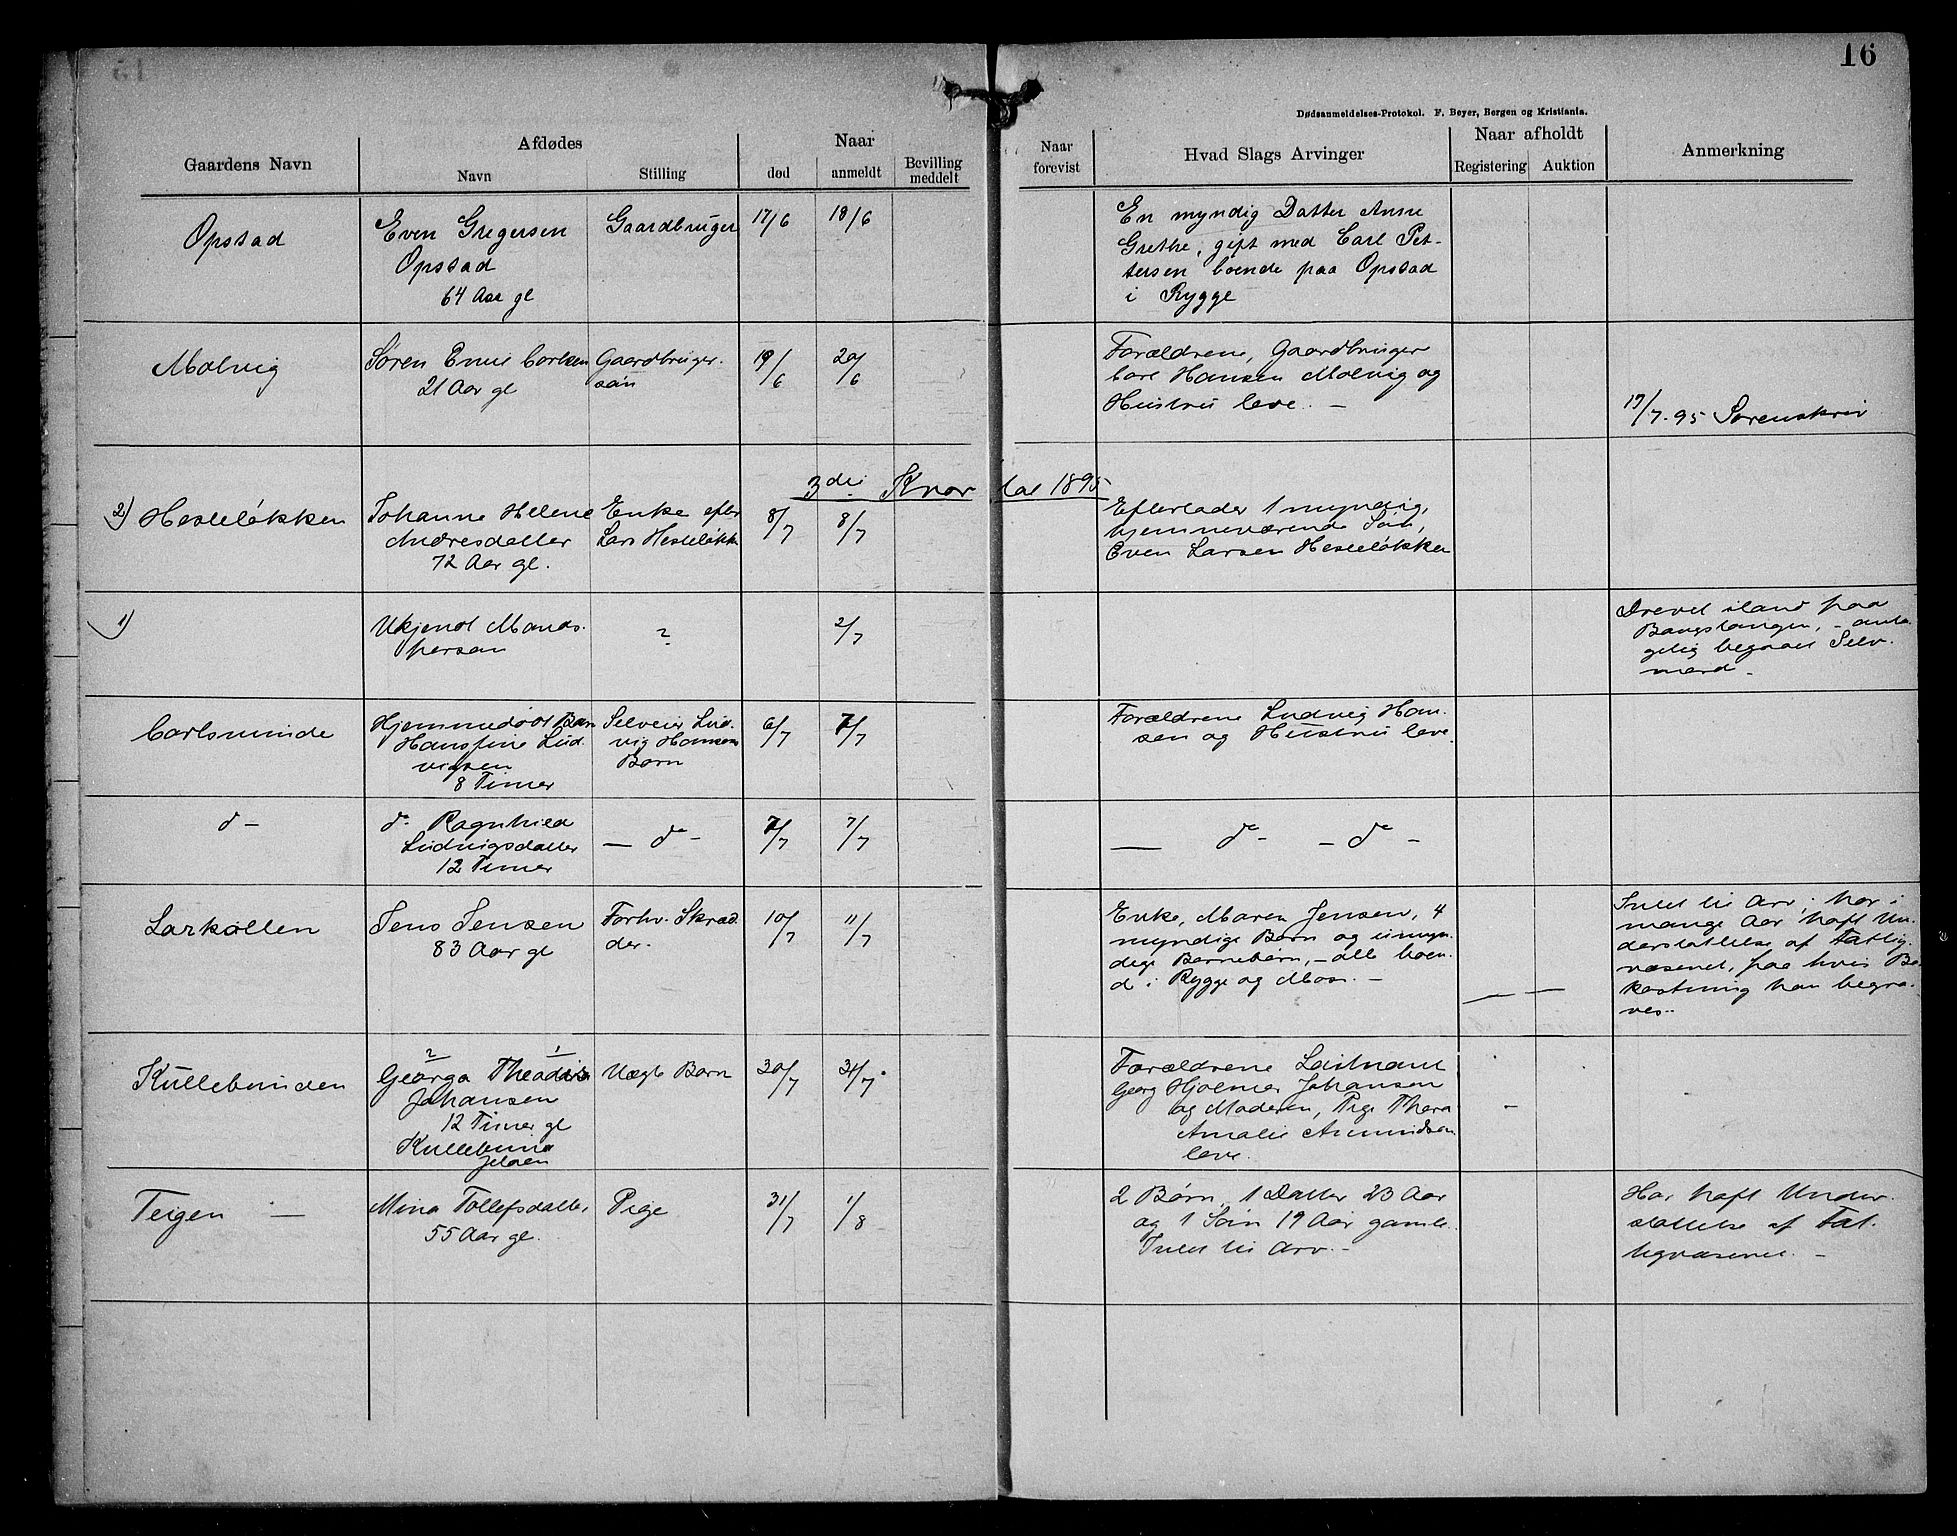 16
Dødsanmeldelses-Protokol. F. Beyer, Bergen og Kristiania.
Gaardens Navn
Afdødes
Navn
Stilling
Naar
død
anmeldt
Bevilling meddelt
Naar forevist
Hvad Slags Arvinger
Naar afholdt
Registering
Auktion
Anmerkning
Opstad
Even Gregersen
Opstad
64 Aar gl
Gaardbruger
17/6
18/6
En myndig Datter Anne
Grethe, gift med Carl Pet-
tersen boende paa Opstad
i Rygge
Molvig
Søren Emil Carlsen
21 Aar gl
Gaardbruger.
søn
19/6
20/6
Forældrene, Gaardbruger
Carl Hansen Molvig og
Hustru leve. –
19/7-95 Sorenskriv
3die Kvartal 1895
2) Hesteløkken
Johanne Helene
Andresdatter
72 Aar gl.
Enke efter
Lars Hesteløkk
8/7
8/7
Efterlader 1 myndig,
hjemmeværende Søn,
Even Larsen Hesteløkken
1)
Ukjendt Mands-
person
?
2/7
Drevet iland paa
Bangstangen, – anta-
gelig begaaet Selv-
mord –
Carlsminde
Hjemmedøbt Barn
Hansine Lud-
vigsen
8 Timer
Selveier Lud-
vig Hansens
Barn
6/7
7/7
Forældrene Ludvig Han-
sen og Hustru leve.
do –
do Ragnhild
Ludvigsdatter
12 Timer
– do –
7/7
7/7
– do – – do –
Larkollen
Jens Jensen
83 Aar gl
Forhv. Skræd-
der.
10/7
11/7
Enke, Maren Jensen, 4
myndige Børn og umyn-
dige Børnebørn, – alle boen-
d i Rygge og Moss. –
— —
Intet til Arv; har i
mange Aar haft Un-
derstøttelse af Fattig-
væsenet, paa hvis Be-
kostning han begra-
ves. –
Kullebunden
2 1
Georga Theodora
Johansen
12 Timer gl
Kullebund
Jeløen
Uægte Barn
30/7
31/7
Forældrene Løitnant
Georg Hjalmar Johansen
og Moderen, Pige Thora
Amalie Amundsen
leve.
–
Teigen –
Mina Tollefsdatter,
55 Aar gl.
Pige
31/7
1/8
2 Børn, 1 Datter 23 Aar
og 1 Søn 19 Aar gamle.
Intet til Arv. –
Har haft Under-
støttelse af Fat-
tigvæsenet. –